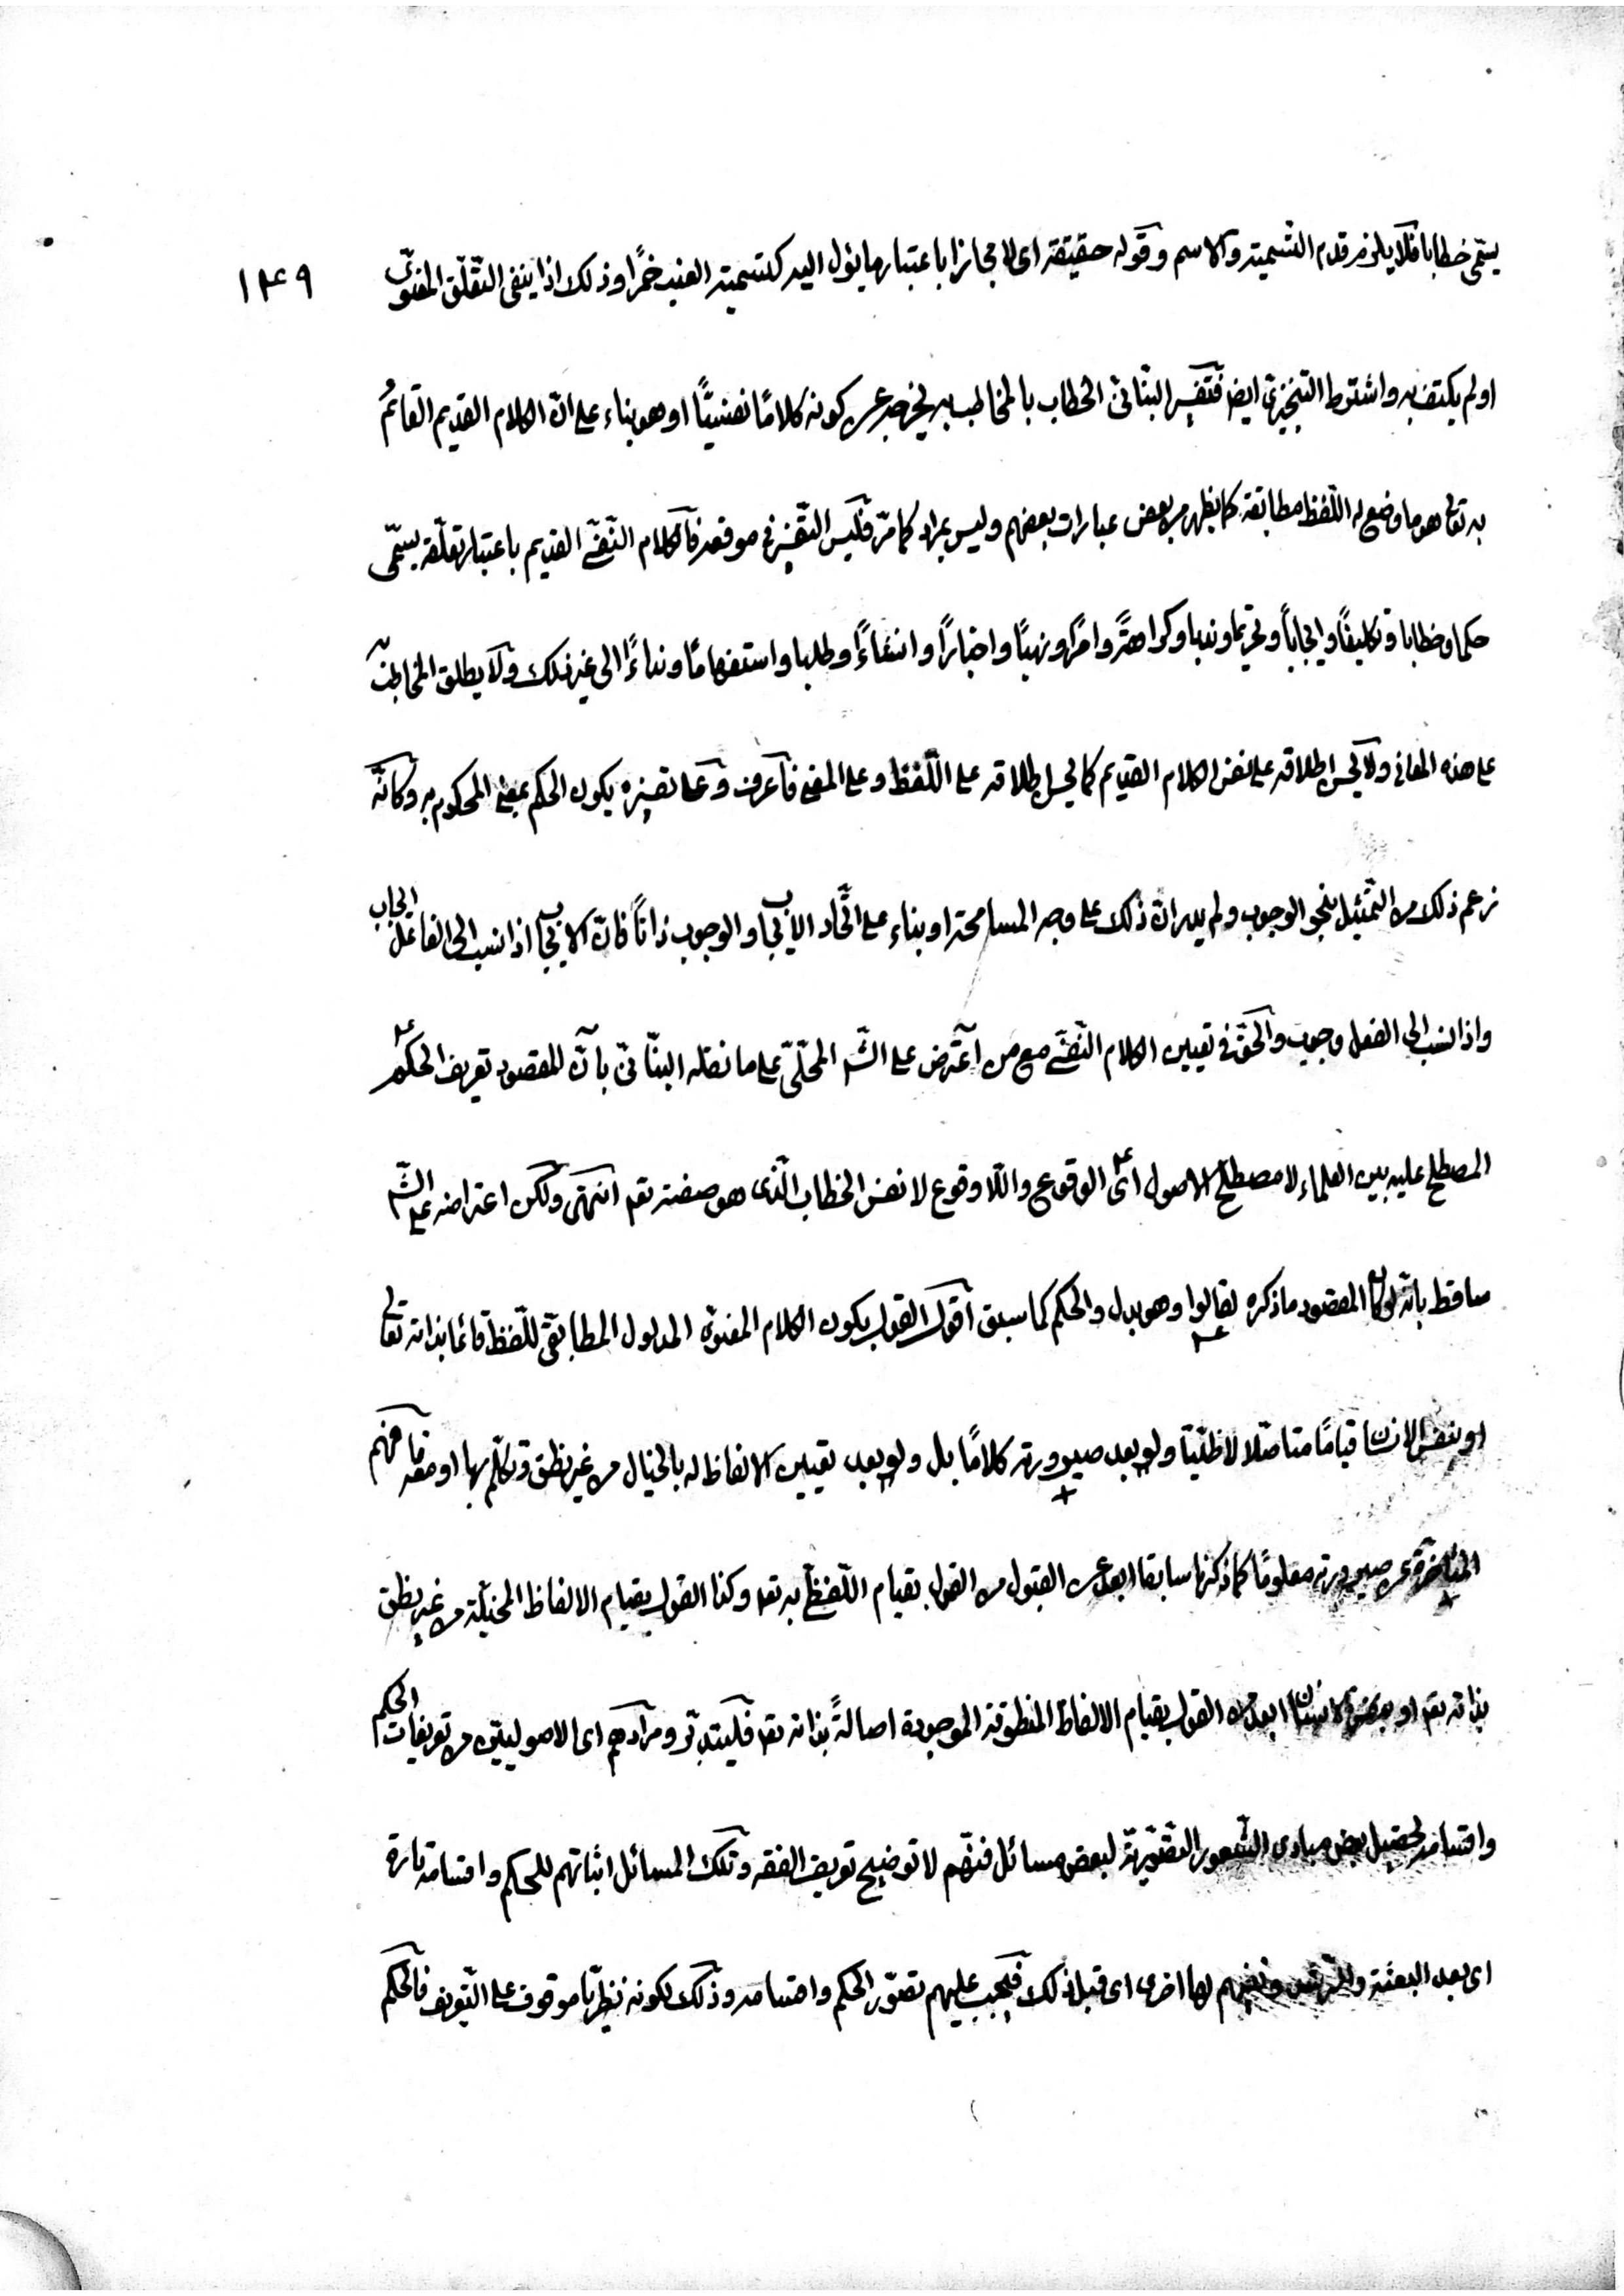 ١٤٩
يسمّى خطابا فلا يلزم قدم التسمية والاسم وقوله حقيقة اى لا مجازا باعتبار ما يؤل اليه كتسمية العنب خمرًا وذلك اذا ينفى التعلّق المعنوىّ
او لم يكتف به واشترط التنجيزىّ ايض فتفسير البنّانىّ الخطاب بالمخاطب به يخرجه عن كونه كلامًا نفسيًّا او هو بناء على انّ الكلام القديم القائمُ
به تعالى هو ما وضع له اللّفظ مطابقة كما يظهر من بعض عبارات بعضهم وليس بمراد كما مرّ فليس التّفسير فى موقعه فالكلام النّفسىّ القديم باعتبار تعلّقه يسمّى
حكما وخطابا وتكليفًا وايجاباً وتحريما وندبا وكراهةً وامرًا ونهيًا واخبارًا وانشاءًا وطلبا واستفهامًا ونداءً الى غير ذلك ولا يطلق المخاطب به
على هذه المعانى ولا يحسن اطلاقه على نفس الكلام القديم كما يحسن اطلاقه على اللّفظ وعلى المعنى فاعرف وعلى تفسيره يكون الحكم بمعنى المحكوم به وكانّه
زعم ذلك من التّمثيل بنحو الوجوب ولم يدر انّ ذلك على وجه المسامحة او بناء على اتّحاد الايجاب والوجوب ذاتاً فانّ الايجاب اذا نسب الى الفاعل ايجاب
واذا نسب الى الفعل وجوب والحقّ فى تعيين الكلام النّفسىّ مع من اعترض على الشّم المحلّىّ على ما نقله البنّانىّ بانّ المقصود تعريف الحكم
المصطلح عليه بين العلماء لا مصطلح الاصول اى الوقوع واللّا وقوع لا نفس الخطاب الّذى هو صفته تعه انتهى ولكن اعتراضه على الشّم
ساقط بانّه لو كان المقصود ما ذكره لقالوا وهو بدل والحكم كما سبق اقول القول بكون الكلام المعنوىّ المدلول المطابقىّ للّفظ قائما بذاته تعالى
او بنفس الانسان قيامًا متاصّلا لا ظلّيّا ولو بعد صيرورته كلامًا بل ولو بعد تعيين الالفاظ له بالخيال من غير نطق وتكلّم بها او
المتاخّرة عن صيرورته معلومًا كما ذكرنا سابقا ابعد عن القبول من القول بقيام اللّفظىّ به تعه وكذا القول بقيام الالفاظ المخيّلة من غير نطق
بذاته تعه او بنفس الانسان ابعد من القول بقيام الالفاظ المنطوقة الموجودة اصالةً بذاته تعه فليتدبّر ومرادهم اى الاصوليين من تعريفات الحكم
واقسامه تحصيل بعض مبادى الشّعور التّصوّريّة لبعض مسائل فنّهم لا توضيح تعريف الفقه وتلك المسائل اثباتهم للحكم واقسامه تارة
اى بعد البعثة ونفيهم لها اخرى اى قبل ذلك فيجب عليهم تصوّر الحكم واقسامه وذلك لكونه نظريّا موقوف على التّعريف فالحكم